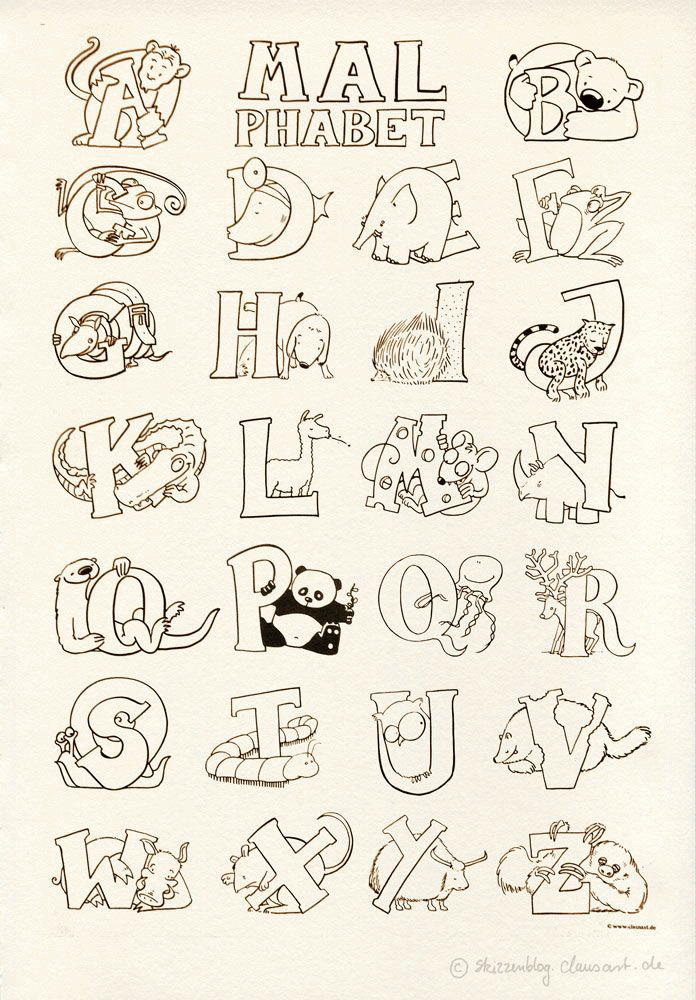 MAL
PHABET
A
B
C
D
E
F
G
H
I
J
K
L
M
N
O
P
Q
R
S
T
U
V
W
X
Y
Z
© www.clausast.de
© skizzenblog.clausast.de